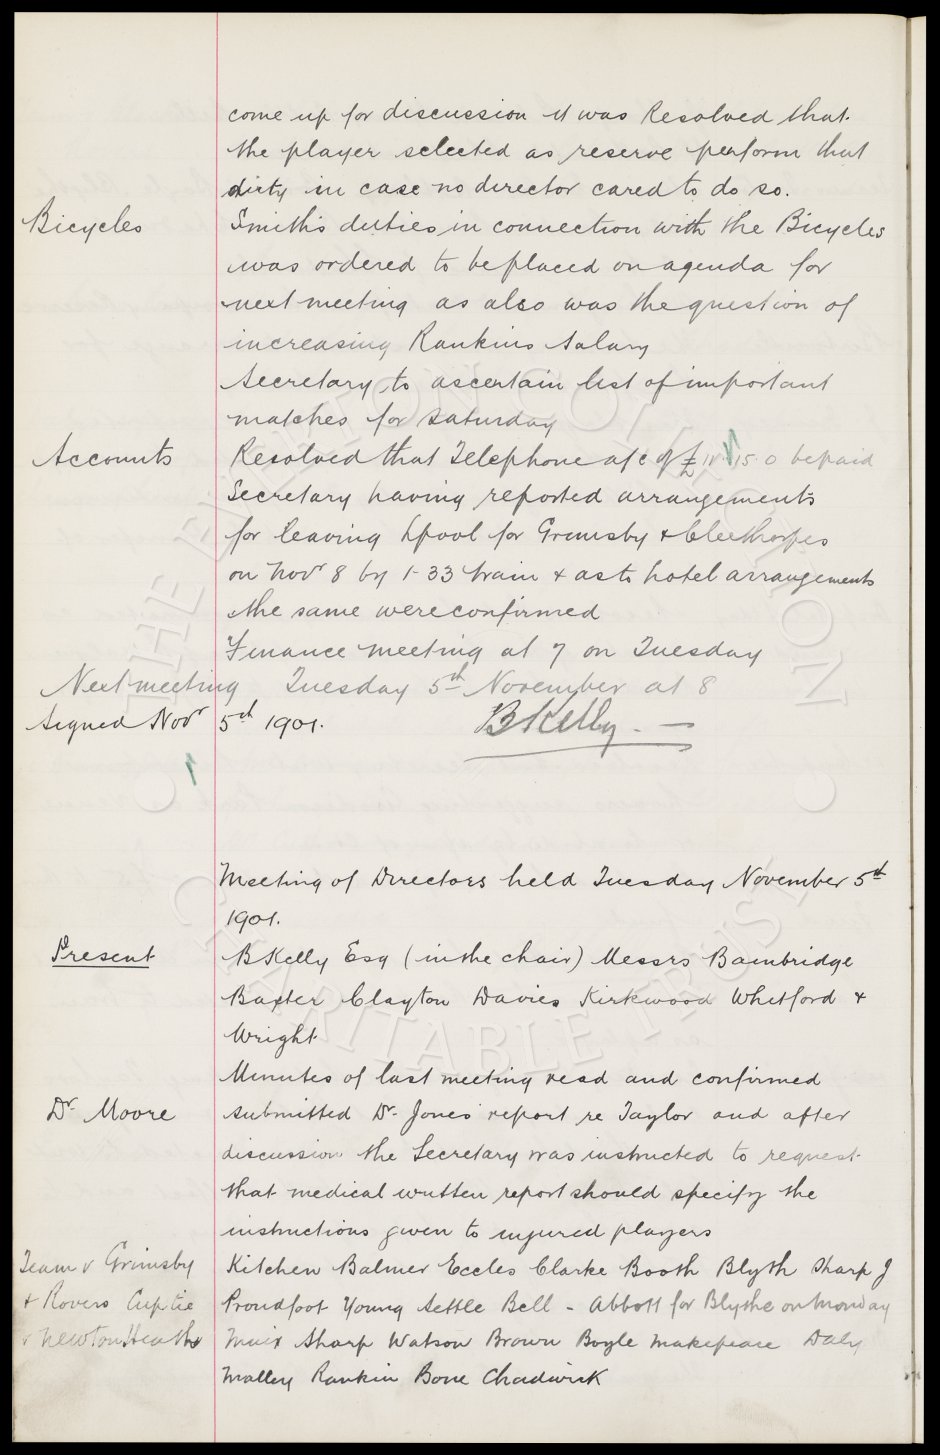 come up for discussion it was Resolved that
the player selected as reserve perform that
dirty in case no director cared to do so.
Bicycles Smith's duties in connection with the Bicycles
was ordered to be placed on agenda for
next meeting as also was the question of
increasing Rankins salary
Secretary to ascertain list of important
matches for Saturday
Accounts Resolved that Telephone a/c of £ 15.0 be paid
Secretary having reported arrangements
for leaving Lpool for Grimsby & Cleethorpes
on Novr 8 by 1-33 train & as to hotel arrangements
the same were confirmed
Finance meeting at 7 on Tuesday
Next meeting Tuesday 5th November at 8
Signed Novr 5th 1901. B Kelly.
Meeting of Directors held Tuesday November 5th
1901.
Present B Kelly Esq (in the chair) Messrs Bainbridge
Baxter Clayton Davies Kirkwood Whitford &
Wright
Minutes of last meeting read and confirmed
Dr. Moore Submitted Dr. Jones' report re Taylor and after
discussion the Secretary was instructed to request
that medical written report should specify the
instructions given to injured players
Team v Grimsby Kitchen Balmer Eccles Clarke Booth Blyth Sharp J
& Rovers Cup tie Proudfoot Young Settle Bell - Abbott for Blythe on Monday
v Newton Heath Muir Sharp Watson Brown Boyle Makepeace Daly
Malley Rankin Bone Chadwick
THE EVERTON COLLECTION
CHARITABLE TRUST